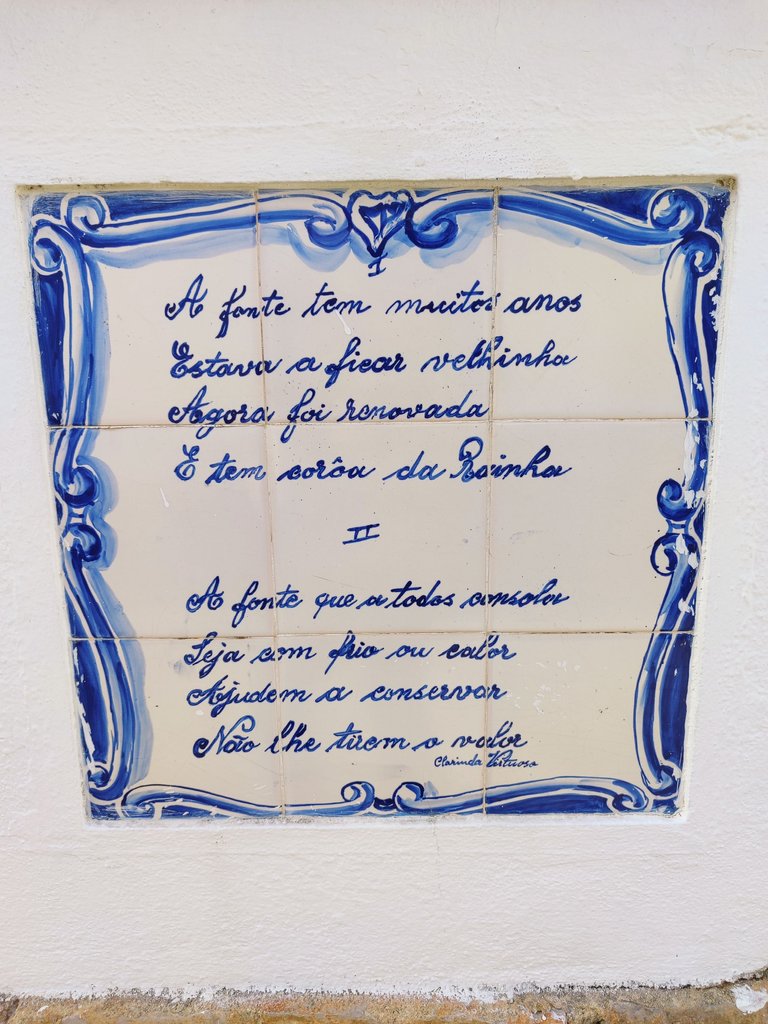 I
A fonte tem muitos anos
Estava a ficar velhinha
Agora foi renovada
E tem corôa da Rainha
II
A fonte que a todos consola
Seja com frio ou calor
Ajudem a conservar
Não lhe tirem o valor
Clarinda Virtuoso